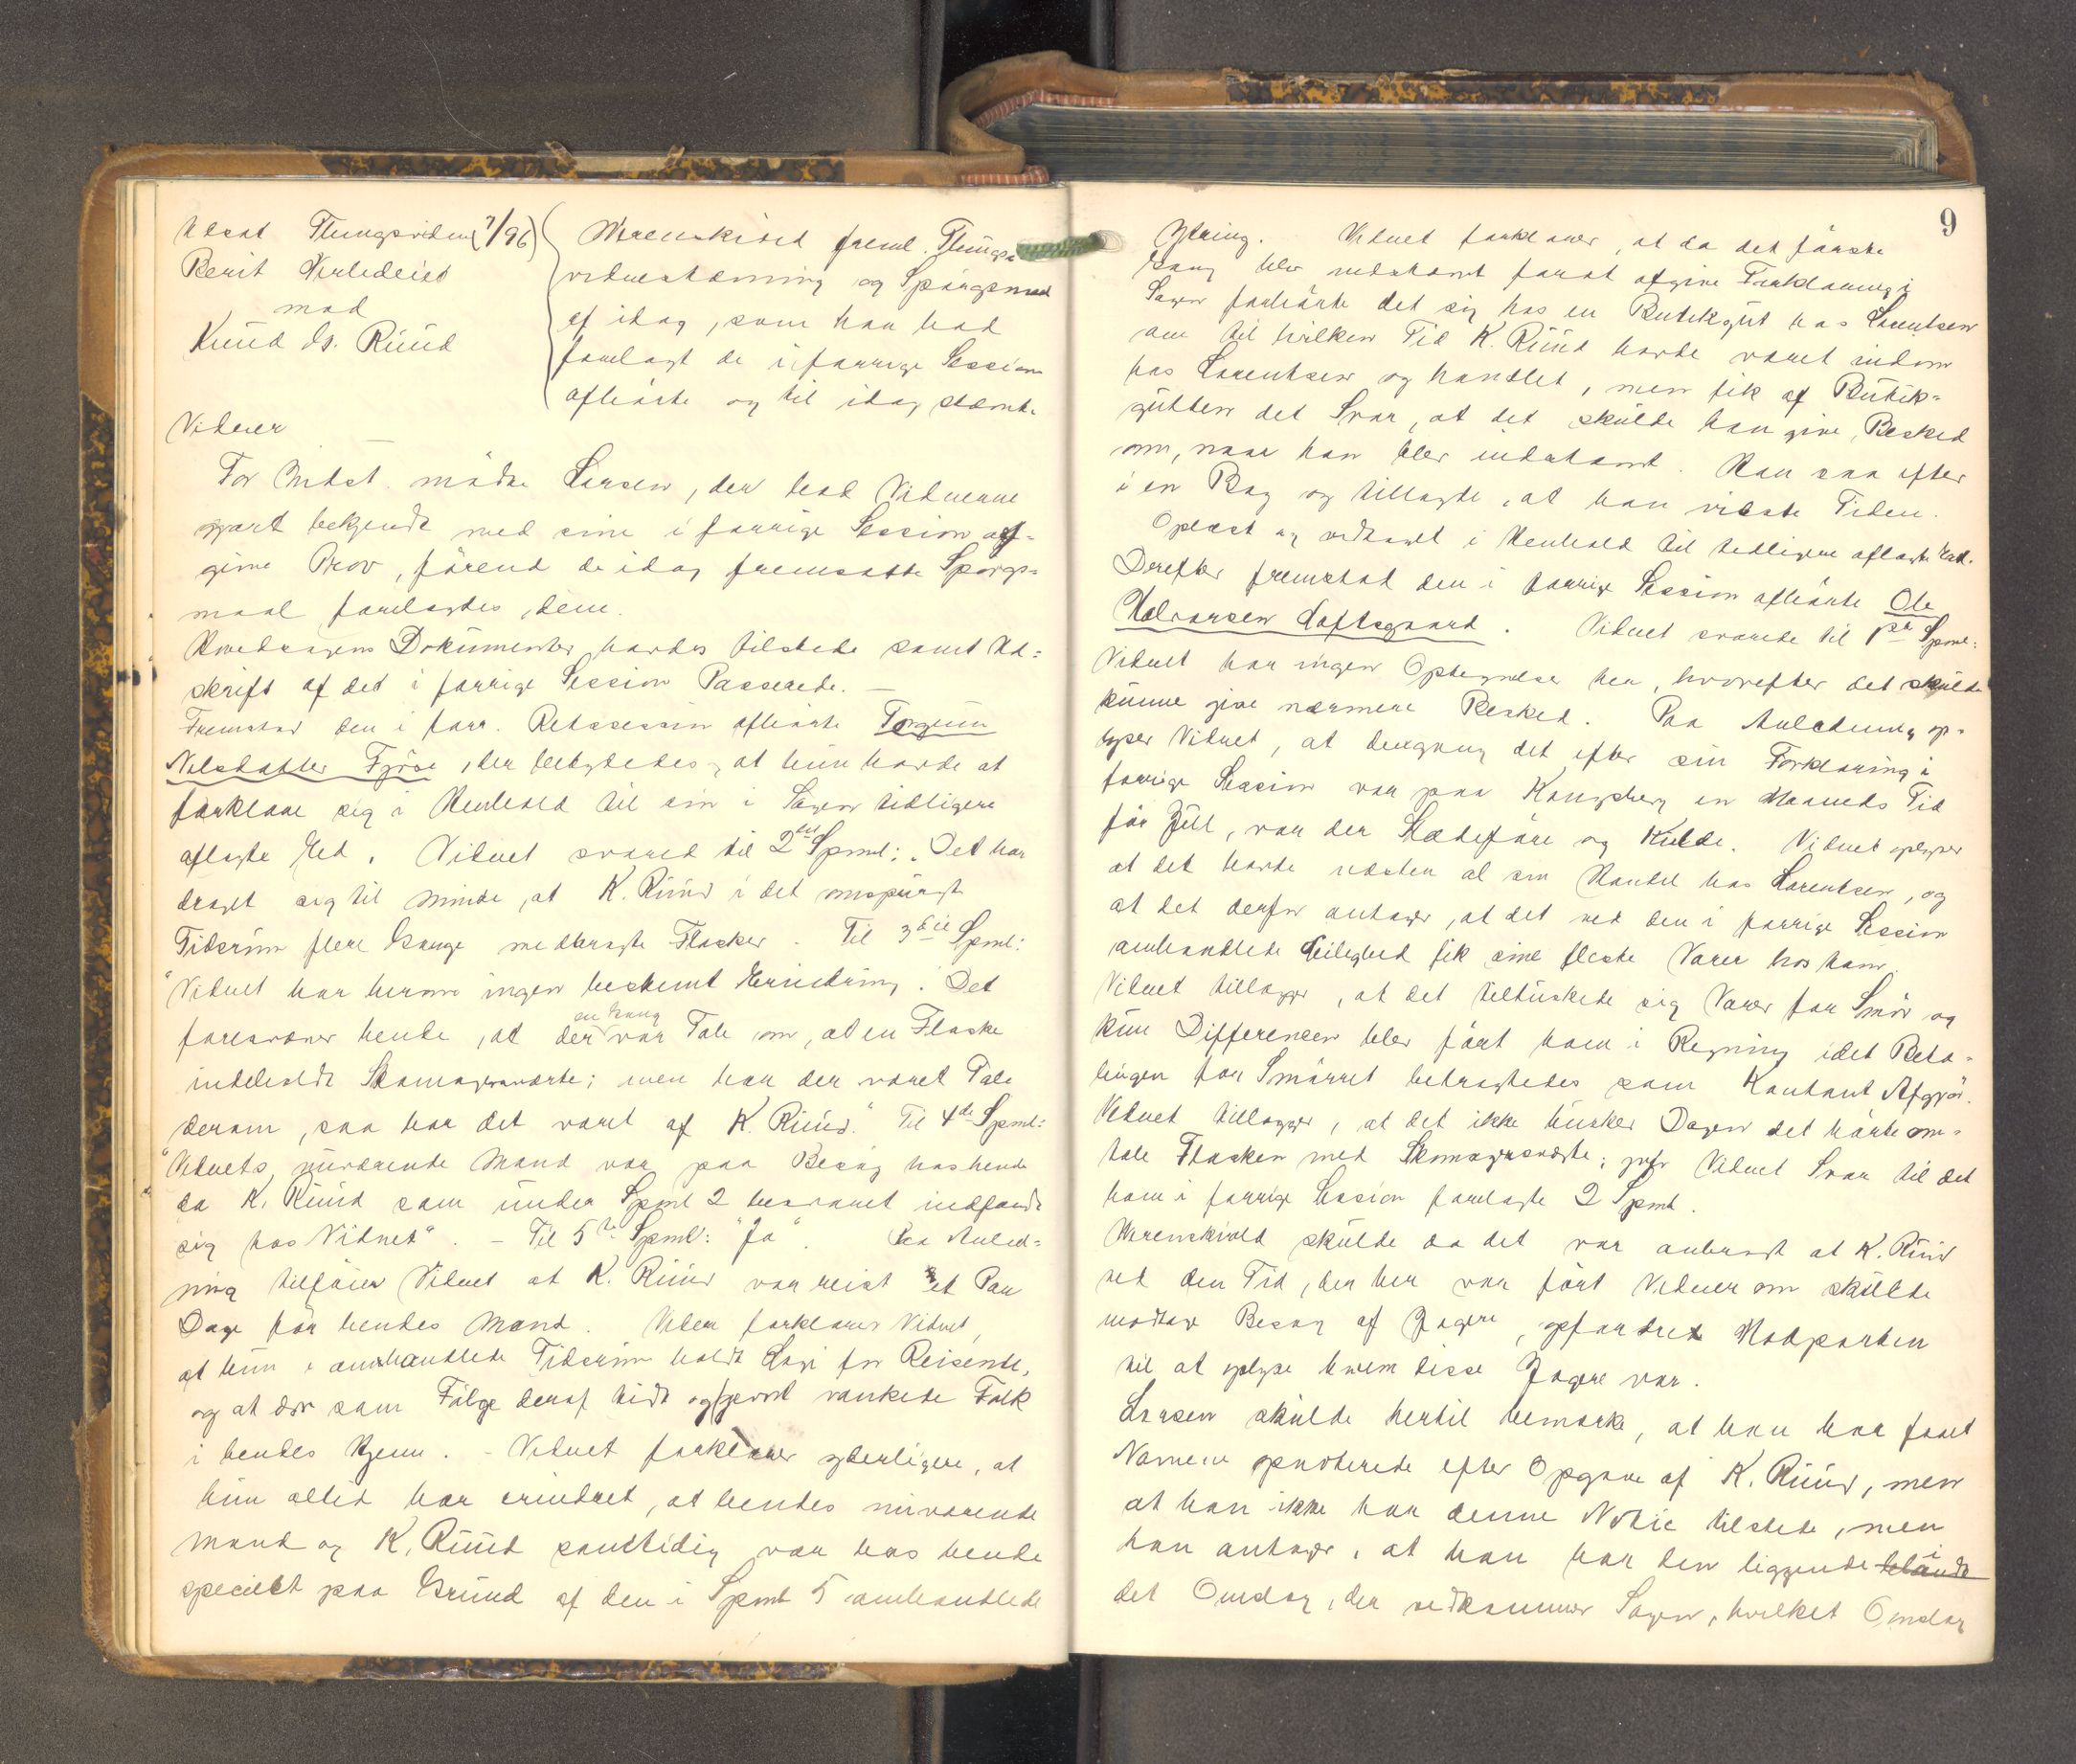 Utsat Thingsvidne (7/96)
Berit Verledeist
mod
Knud Gs. Ruud
Werenskiold freml. Things-
vidnestævning og Spörgsmaal
af idag, som han bad
forelagt de i forrige Session
afhörte og til idag stævnte
Vidner
For Indst. mödte Larsen, der bad Vidnerne
gjort bekjendt med sine i forrige Session af-
givne Prov, förend de idag fremsatte Spörgs-
maal forelagdes dem.
Hovedsagens Dokumenter havdes tilstede samt Ud-
skrift af det i forrige Session Passerede. —
Fremstod den i forr. Retssession afhörte Torgunn
Nilsdatter Fjöse, der betydedes, at hun havde at
forklare sig i Henhold til sin i Sagen tidligere
aflagte Ed. Vidnet svared til 2det Spml: "Det har
draget sig til Minde, at K. Ruud i det omspurgte
Tidsrum flere Gange medbragte Flasker". Til 3die Spml:
"Vidnet har herom ingen bestemt Erindring. Det
foresvæver hende, at der en Gang var Tale om, at en Flaske
indeholdt Skomagersværte; men har der været Tale
derom, saa har det været af K. Ruud." Til 4de Spml:
"Vidnets nuværende Mand var paa Besög hos hende
da K. Ruud som under Spml 2 besvaret indfandt
sig hos Vidnet". - Til 5te Spml: "Ja". Paa Anled-
ning tilföier Vidnet at K. Ruud var reist et Par
Dage för hendes Mand. Viden forklarer Vidnet,
at hun i omhandlede Tidsrum holdt Logi for Reisende,
og at der som Fölge deraf tidt og jevnt vankede Folk
i hendes Hjem. - Vidnet forklarer yderligere, at
hun altid har erindret, at hendes nuværende
Mand og K. Ruud samtidig var hos hende
specielt paa Grund af den i Spml 5 omhandlede
9
Ytring. Vidnet forklarer, at da det förste
Gang blev indstævnt forat afgive Forklaring i
Sagen forhörte det sig hos en Butikgut hos Lorentsen
om til hvilken Tid K. Ruud havde været indom
hos Lorentsen og handlet, men fik af Butik-
gutten det Svar, at det skulde han give Besked
om, naar han blev indstævnt. Han saa efter
i en Bog og tillagde, at han vidste Tiden.
Oplæst og vedtaget i Henhold til tidligere aflagte Ed.
Derefter fremstod den i forrige Session afhörte Ole
Halvorsen Loftsgaard. Vidnet svarede til 1ste Spml:
Vidnet har ingen Optegnelser her, hvorefter det skulde
kunne give nærmere Besked. Paa Anledning op-
lyser Vidnet, at dengang det efter sin Forklaring i
forrige Session var paa Kongsberg en Maaneds Tid
för Jul, var der Slædeföre og Kulde. Vidnet oplyser
at det havde næsten al sin Handel hos Lorentsen, og
at det derfor antager, at det ved den i forrige Session
omhandlede Leilighed fik sine fleste Varer hos ham.
Vidnet tillægger, at det tiltuskede sig Varer for Smör og
kun Differencen blev fört ham i Regning idet Beta-
lingen for Smörret betragtedes som Kontant Afgjör.
Vidnet tillægger, at det ikke husker Dagen det hörte om-
tale Flasken med Skomagersværte; jvfr Vidnet Svar til det
ham i forrige Session forelagte 2 Spml.
Werenskiold skulde da det var anbragt at K. Ruud
ved den Tid, der her var fört Vidner om skulde
modtage Besög af Jægere, opfordret Modparten
til at oplyse hvem disse Jægere var.
Larsen skulde hertil bemærke, at han har faaet
Navnene opnoterede efter Opgave af K. Ruud, men
at han ikke har denne Notis tilstede, men
han antager, at han har den liggende blandt i
det Omslag, der vedkommer Sagen, hvilket Omslag